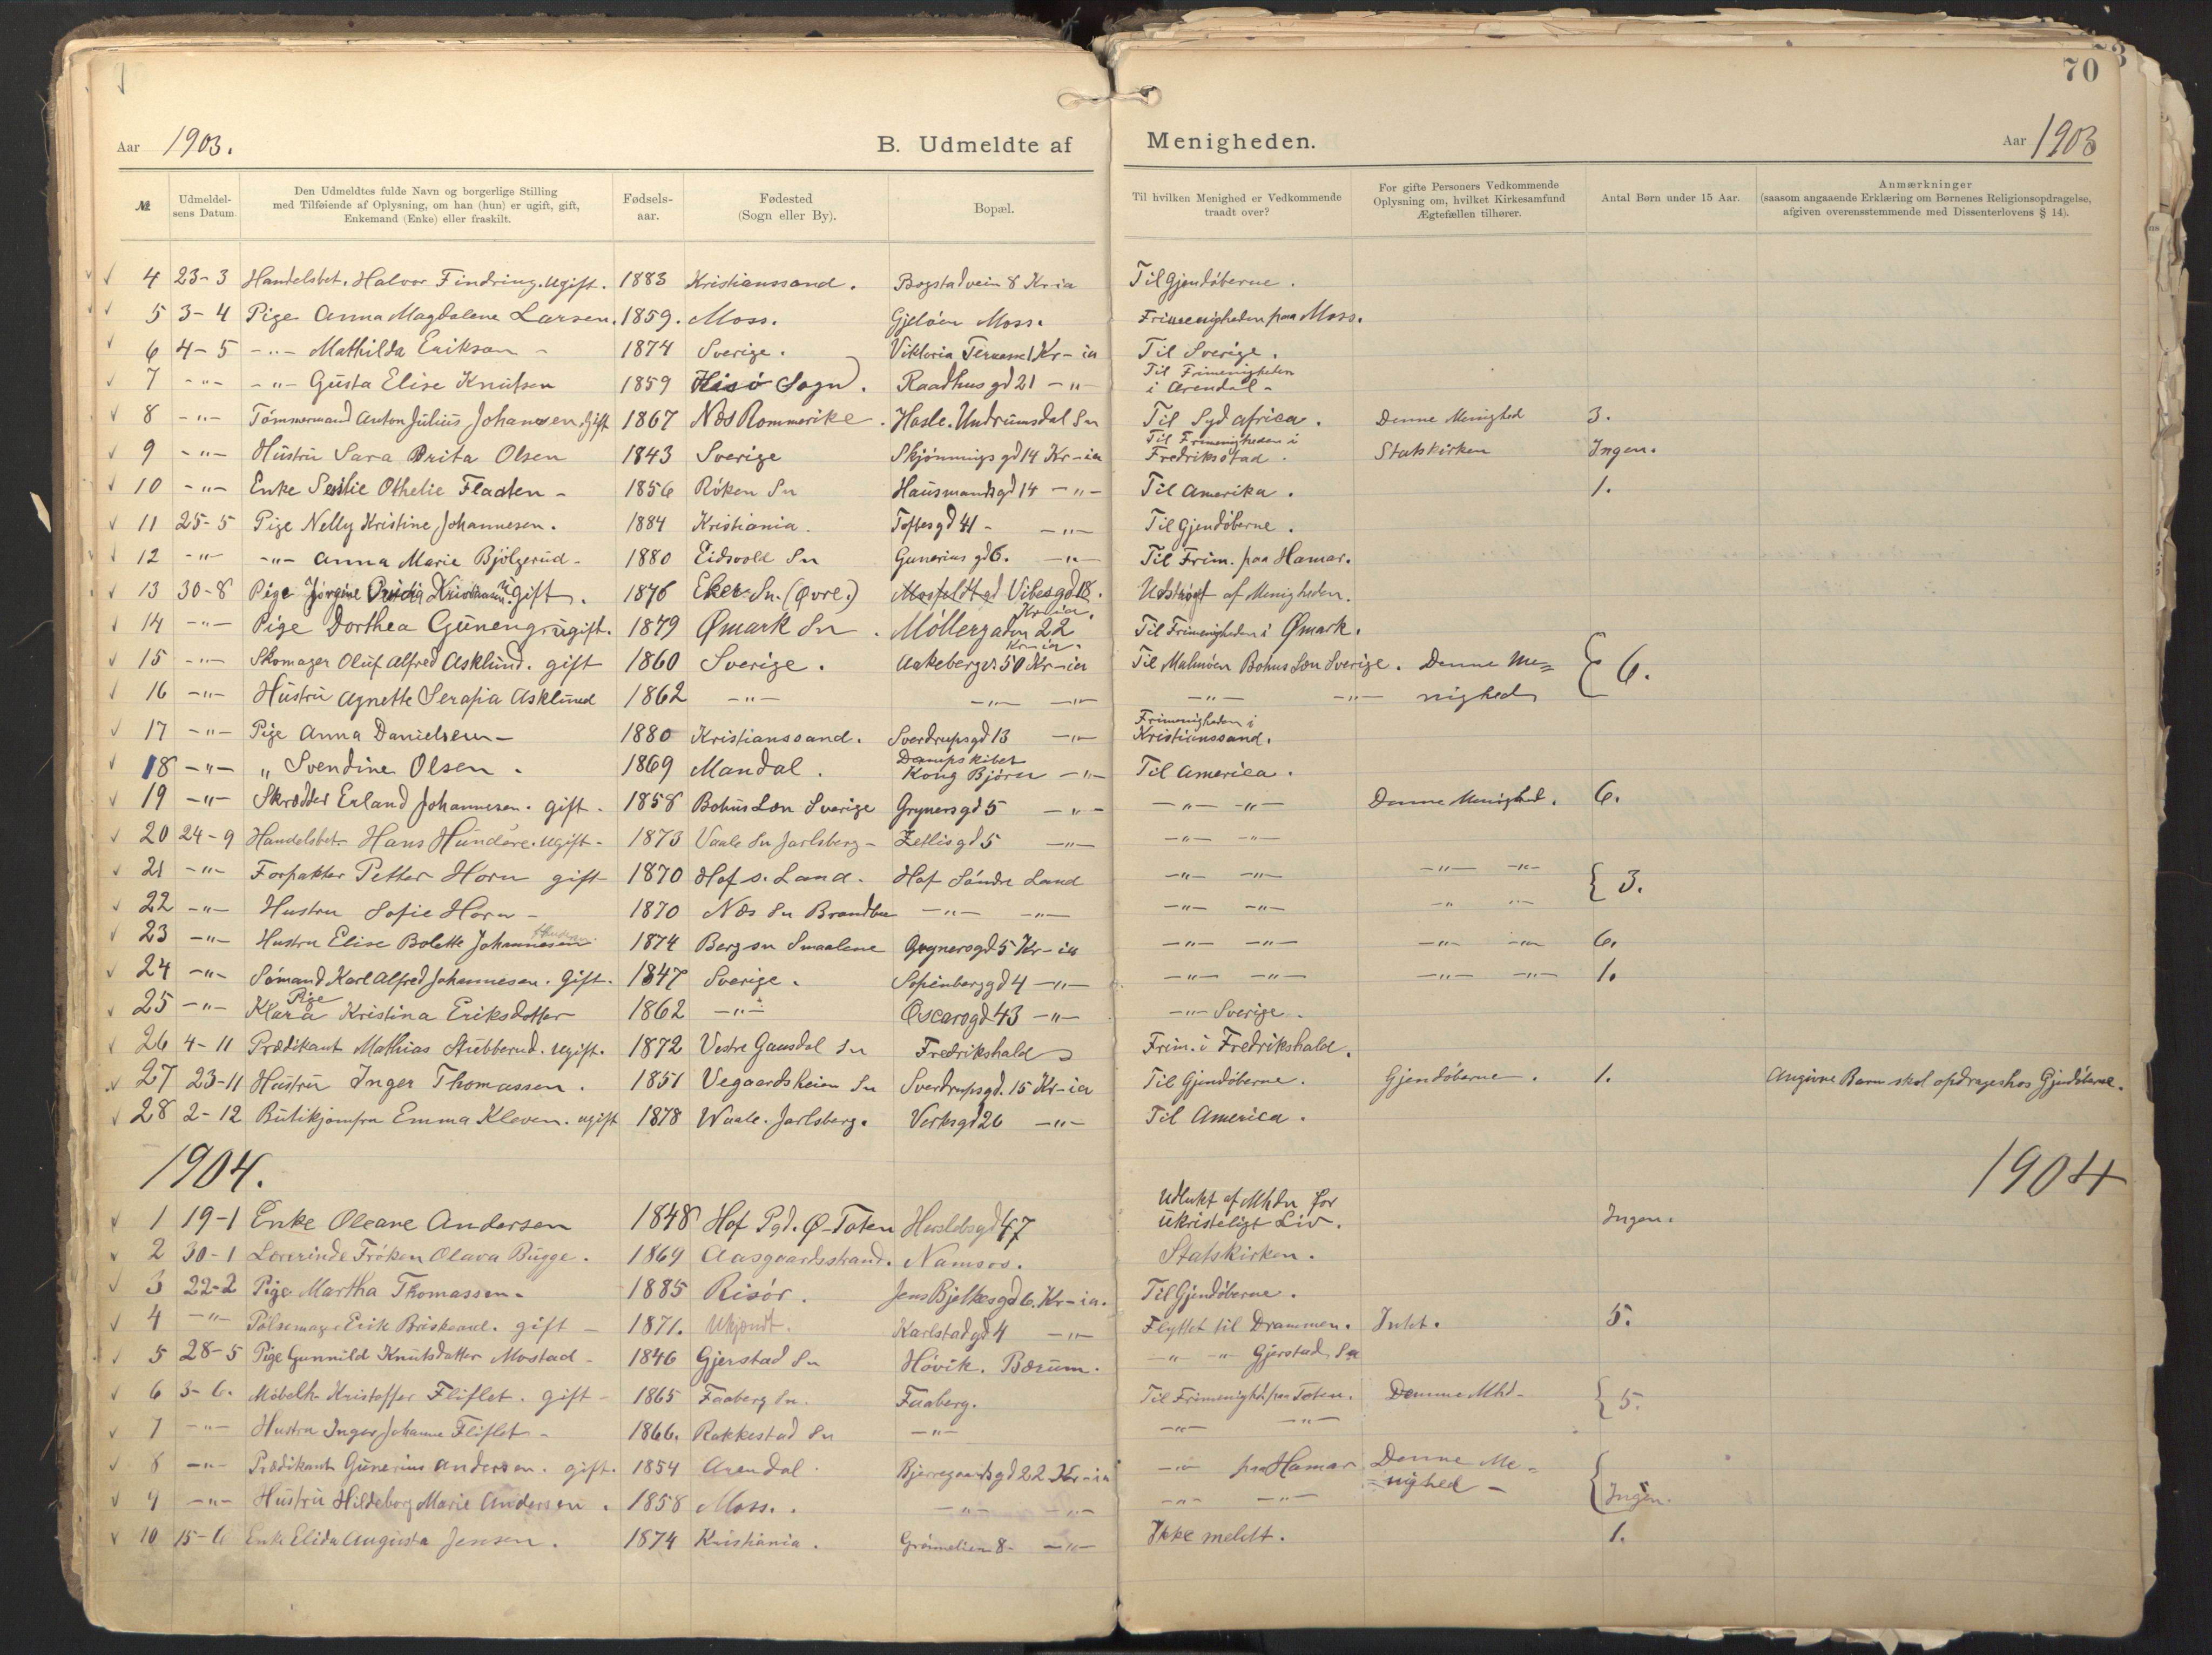 70
Aar 1903. B. Udmeldte af Menigheden. Aar 1903
№ Udmeldelsens Datum. Den Udmeldtes fulde Navn og borgerlige Stilling med Tilføiende af Oplysning, om han (hun) er ugift, gift, Enkemand (Enke) eller fraskilt. Fødselsaar. Fødested (Sogn eller By). Bopæl. Til hvilken Menighed er Vedkommende traadt over? For gifte Personers Vedkommende Oplysning om, hvilket Kirkesamfund Ægtefællen tilhører. Antal Børn under 15 Aar. Anmærkninger (saasom angaaende Erklæring om Børnenes Religionsopdragelse, afgiven overensstemmende med Dissenterlovens § 14).
4 23-3 Handelsbet. Halvor Findring. Ugift. 1883 Kristianssand. Bogstadvein 8 Kr-ia Til Gjendøberne.
5 3-4 Pige Anna Magdalene Larsen. 1859. Moss. Gjeløen Moss. Frimenigheden paa Moss.
6 4-5 -"- Mathilda Erikson - 1874 Sverige. Viktoria Terrasse 1 Kr-ia Til Sverige.
7 -"- -"- Gusta Elise Knutsen 1859 Hisø Sogn. Raadhusgd 21 -"- Til Frimenigheden i Arendal-
8 -"- Tømmermand Anton Julius Johansen, Gift 1867 Næs Rommerike. Hasle. Undrumsdal Sn Til Syd africa. Denne Menighed 3.
9 -"- Hustru Sara Brita Olsen 1843 Sverige Skjønnings gd 14 Kr-ia Til Frimenigheden i Fredriksstad. Statskirken Ingen.
10 -"- Enke Othelie Fladten - 1856 Røken Sn Hausmandsgd 14 -"- Til Amerika. 1.
11 25-5 Pige Nelly Kristine Johannesen. 1884 Kristiania. Toftesgd 41- -"- Til Gjendøberne.
12 -"- -"- Anna Marie Bjølgerud- 1880 Eidsvold Sn Gunerius gd 6. -"- Til Frim. paa Hamar.
13 30-8 Pige Jørgine Kristiansen Ugift. 1876 Eker Sn. (Øvre.) Vibesgd 18. Kr-ia. Udstrøget af Menigheden.
14 -"- Pige Dorthea Guneng, ugift. 1879 Ømark Sn. Møllergaden 22 Kr-ia. Til Frimenigheden i Ømark.
15 -"- Skomager Oluf Alfred Asklund. gift 1860 Sverige. Aakebergv 50 Kr-ia Til Malmøen Bohus Læn Sverige. Denne Me= { 6.
16 -"- Hustru Agnette Serafia Asklund 1862 -"- -"- -"- -"- -"- nighed
17 -"- Pige Anna Danielsen- 1880 Kristianssand. Sverdrupsgd 13 -"- Frimenigheden i Kristianssand.
18 -"- " Svendine Olsen. 1869 Mandal. Dampskibet Kong Bjørn -"- Til America.
19 -"- Skrædder Erland Johannesen. gift. 1858 Bohus Læn Sverige Grynersgd 5 -"- -"- -"- Denne Menighed. 6.
20 24-9 Handelsbet. Hans Hundere. Ugift- 1873 Vaale Sn Jarlsberg- Zetlisgd 5 -"- -"- -"-
21 -"- Forpakter Petter Horn gift 1870 Hof s. Land. Hof Søndre Land -"- -"- -"- -"- { 3.
22 -"- Hustru Sofie Horn - 1870 Næs Sn Brandbu -"- -"- -"- -"- -"- -"-
23 -"- Hustru Elise Bolette Johannesen 1874 Berg sn Smaalene Grynersgd 5 Kr-ia -"- -"- -"- -"- 6.
24 -"- Sømand Karl Alfred Johannesen. Gift. 1847 Sverige. Sofienberggd 4 -"- -"- -"- -"- -"- 1.
25 -"- Pige Klara Kristina Eriksdotter 1862 -"- Oscarsgd 43 -"- -"- Sverige.
26 4-11 Prædikant Mathias Stubberud. Ugift. 1872 Vestre Gausdal Sn Fredrikshald Frim. i Fredrikshald.
27 23-11 Hustru Inger Thomassen. 1851 Vegaardsheien Sn Sverdrupsgd. 15 Kr-ia Til Gjendøberne. Gjendøberne. 1. Angivne Barn skal opdrages hos Gjendøberne.
28 2-12 Butikjomfru Emma Kleven. ugift 1878 Waale. Jarlsberg. Verksgd 26 -"- Til America.
1904. 1904
1 19-1 Enke Oleane Andersen 1848 Hof Pgd. Ø-Toten Herslebsgd 47 Udlukt af Mhdn for ukristeligt Liv. Ingen.
2 30-1 Lærerinde Frøken Olava Bugge. 1869 Aasgaardsstrand. Namsos. Statskirken.
3 22-2 Pige Martha Thomassen- 1885 Risør. Jens Bjelkesgd 6. Kr-ia. Til Gjendøberne.
4 -"- Pølsemager Erik gift - 1871. Ukjendt. Karlstadgd 4 -"- Flyttet til Drammen. Intet. 5.
5 28-5 Pige Gunnild Knutsdatter Mostad - 1846 Gjerstad Sn Høvik. Bærum. -"- -"- Gjerstad Sn
6 3-6. Møbelh. Kristoffer Fliflet. gift - 1865 Faaberg Sn. Faaberg. Til Frimenighd. paa Toten. Denne Mhd- { 5.
7 -"- Hustru Inger Johanne Fliflet - 1866. Rakkestad Sn -"- -"- -"-
8 -"- Prædikant Gunerius Andersen. gift. 1854 Arendal. Bjerregaardsgd 22 Kr-ia -"- paa Hamar Denne Me= {
9 -"- Hustru Hildeborg Marie Andersen. 1858 Moss. -"- -"- -"- -"- nighed - Ingen.
10 15-6 Enke Elida Augusta Jensen. 1874 Kristiania. Grønnelien 8- -"- Ikke meldt. 1.